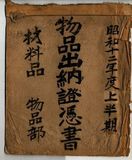 昭和十二年度上半期
物品出納證憑書
材料品
物品部